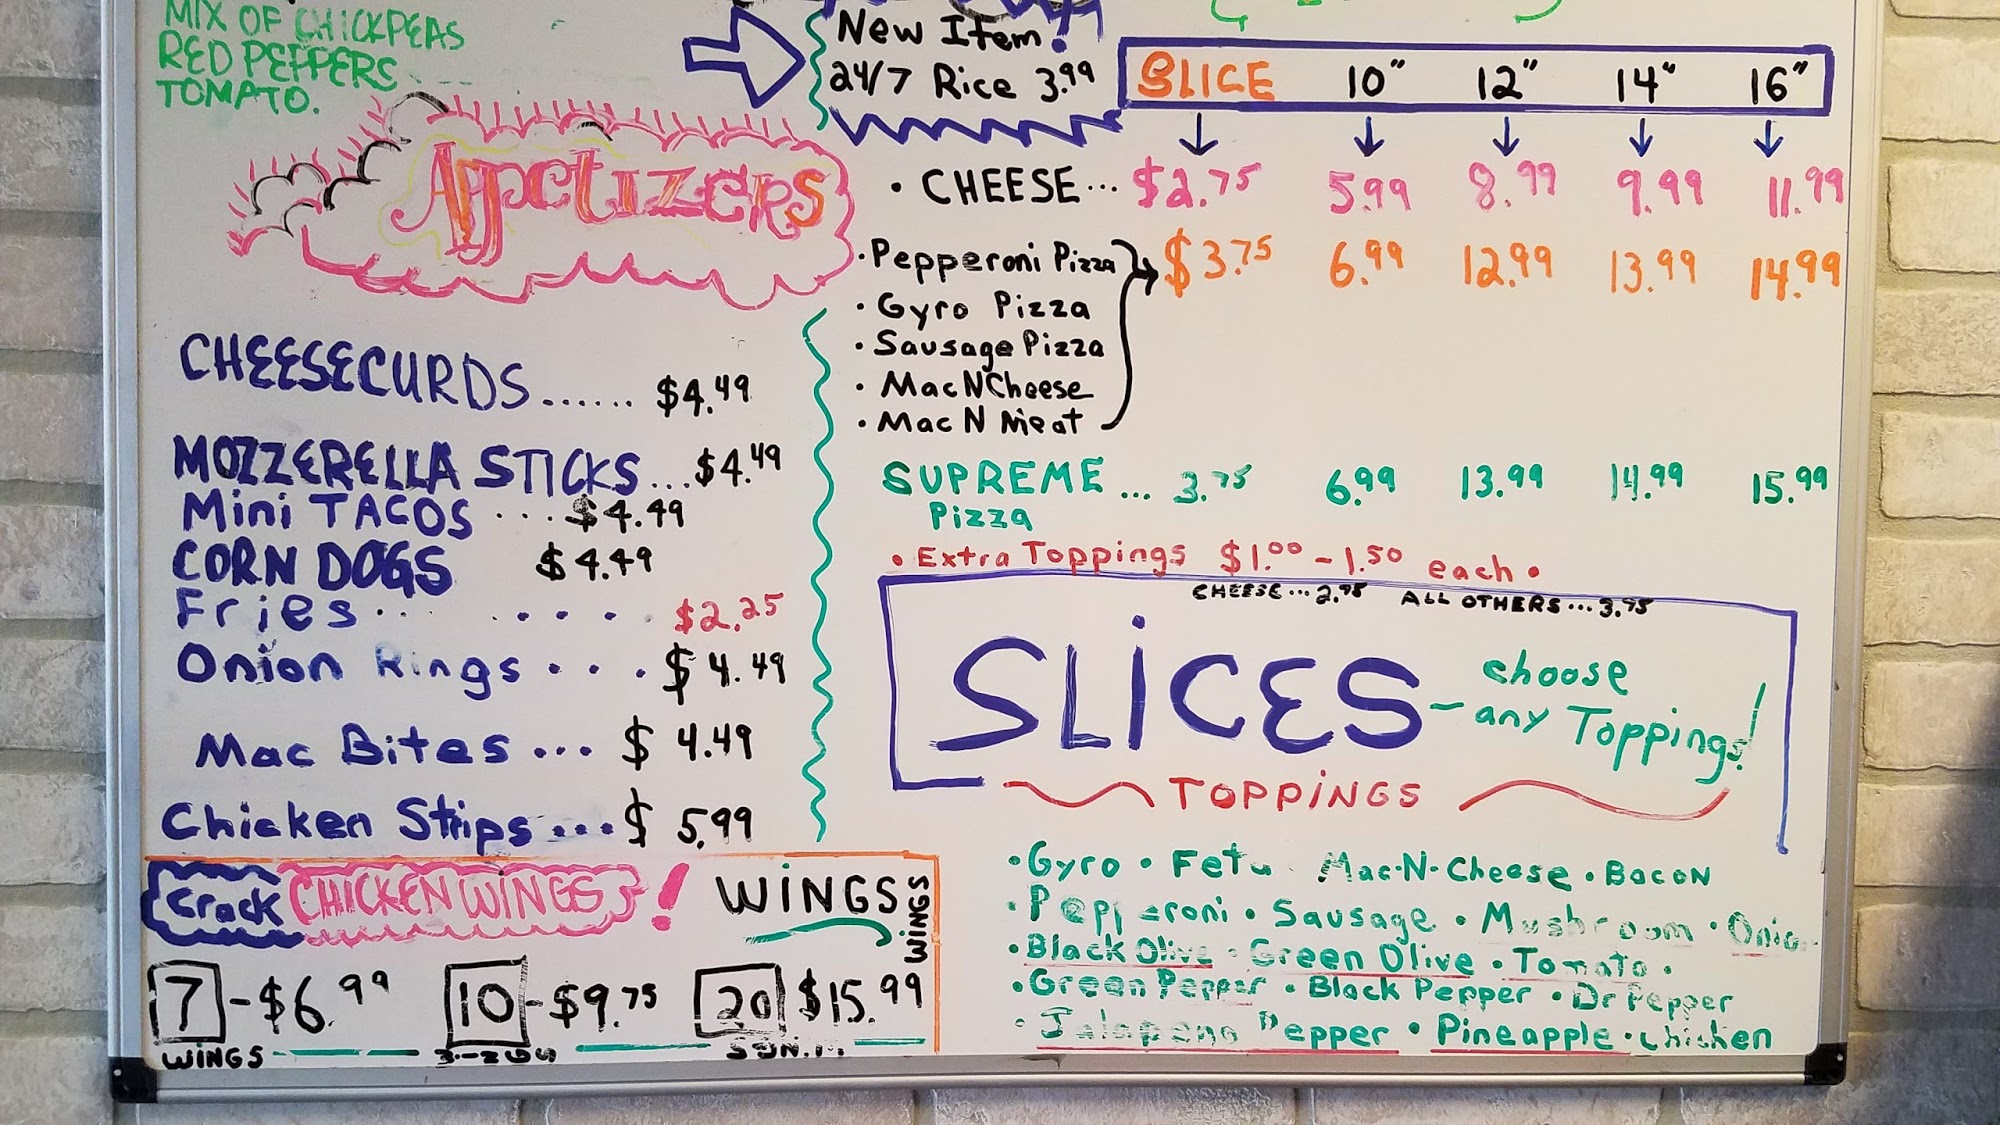 MIX OF CHICKPEAS
RED PEPPERS
TOMATO.
Appetizers
CHEESECURDS...... $4.49
MOZZERELLA STICKS...$4.49
Mini TACOS ...$4.49
CORN DOGS $4.49
Fries.. .... $2.25
Onion Rings...$4.49
Mac Bites...$4.49
Chicken Strips...$5.99
Crack CHICKEN WINGS! WINGS
WINGS
7 -$6.99 10-$9.75 20 $15.99
WINGS
New Item!
24/7 Rice 3.99
SLICE 10" 12" 14" 16"
• CHEESE... $2.75 5.99 8.99 9.99 11.99
• Pepperoni Pizza $3.75 6.99 12.99 13.99 14.99
• Gyro Pizza
• Sausage Pizza
• Mac N Cheese
• Mac N Meat
SUPREME ... 3.75 6.99 13.99 14.99 15.99
Pizza
• Extra Toppings $1.00 - 1.50 each •
CHEESE...2.75 ALL OTHERS...3.75
SLICES - choose
any Toppings!
TOPPINGS
• Gyro • Feta Mac-N-Cheese • Bacon
• Pepperoni • Sausage • Mushroom • Onion
• Black Olive • Green Olive • Tomato •
• Green Pepper • Black Pepper • Dr Pepper
• Jalapeno Pepper • Pineapple • Chicken